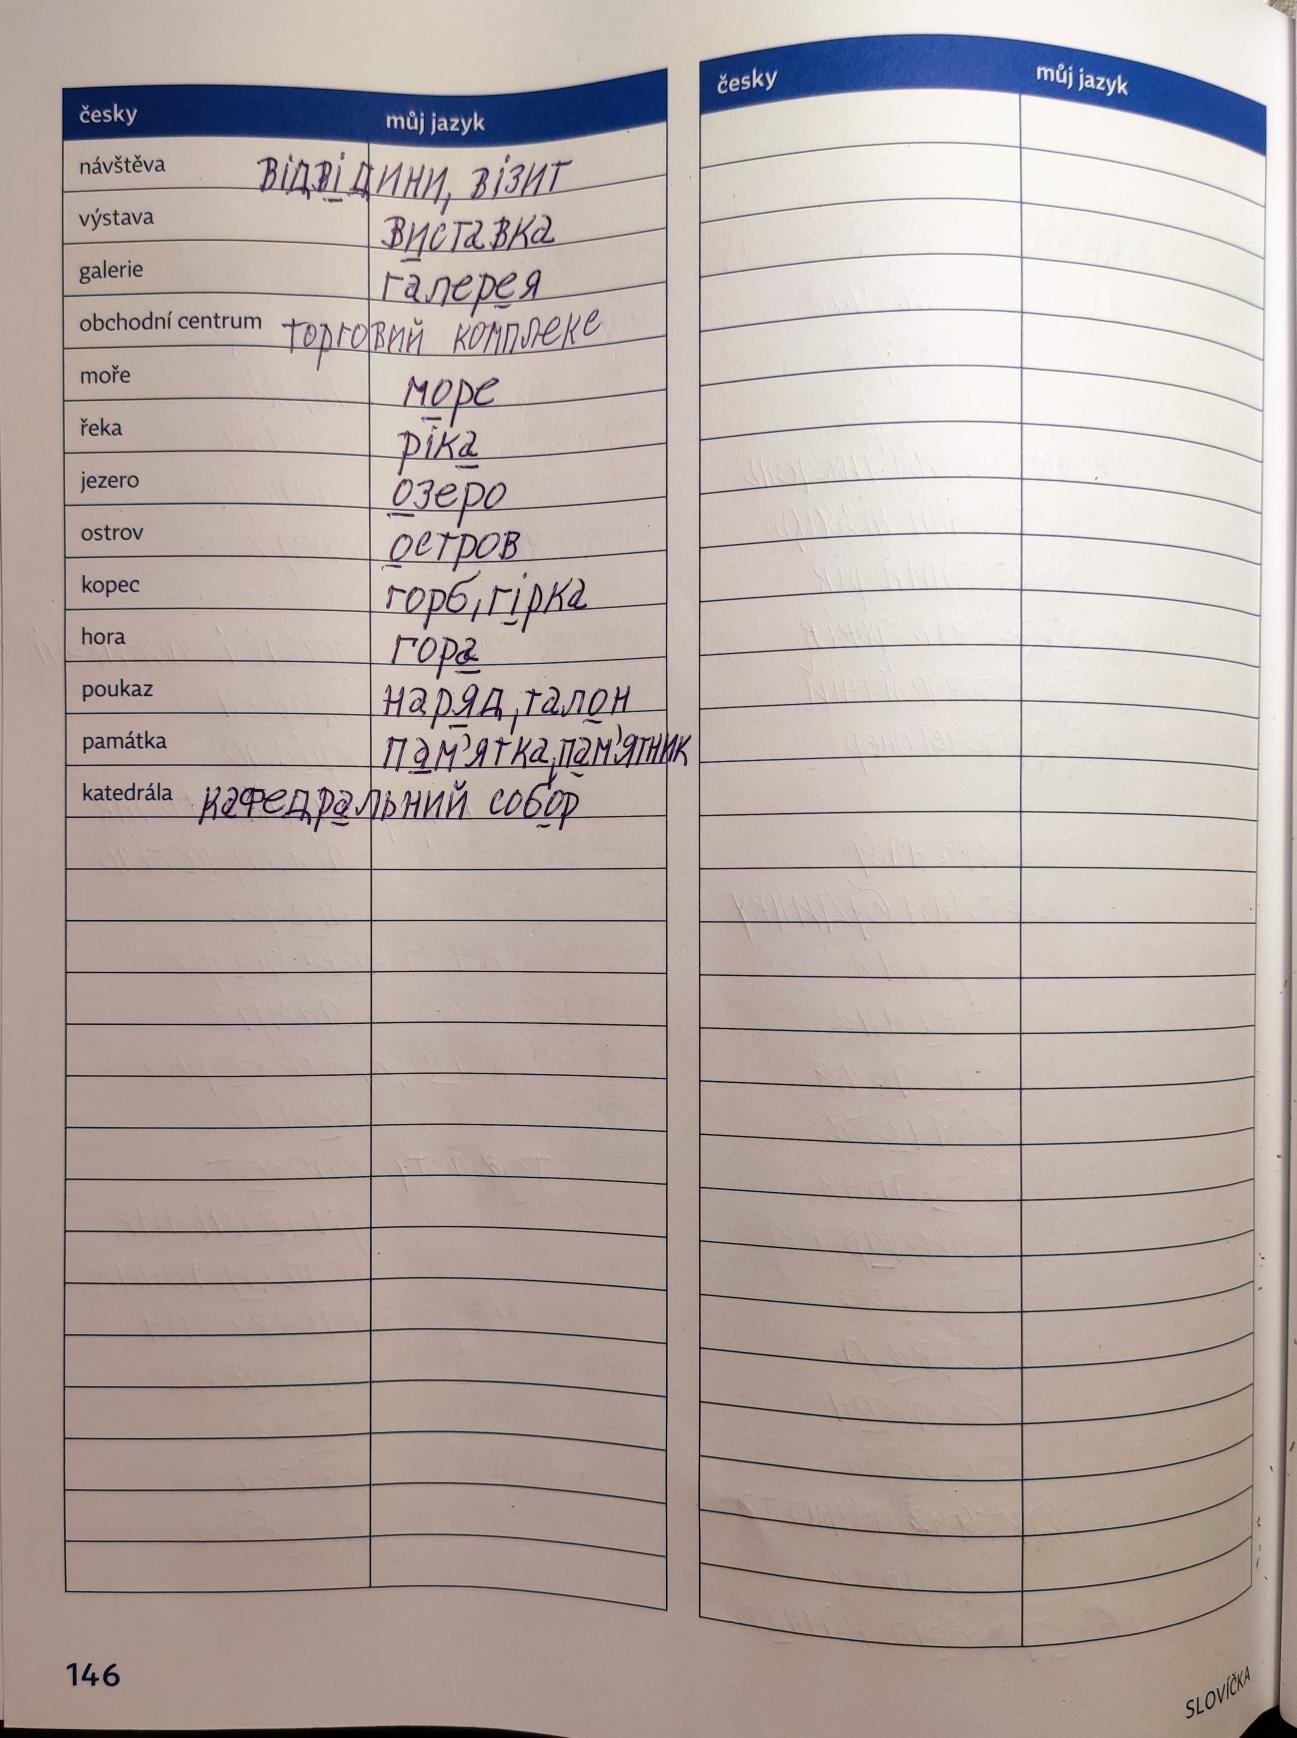 česky můj jazyk
návštěva відвідини, візит
výstava виставка
galerie галерея
obchodní centrum торговий комплекс
moře море
řeka ріка
jezero озеро
ostrov остров
kopec горб, гірка
hora гора
poukaz наряд, талон
památka пам'ятка, пам'ятник
katedrála кафедральний собор
česky můj jazyk
146
SLOVÍČKA